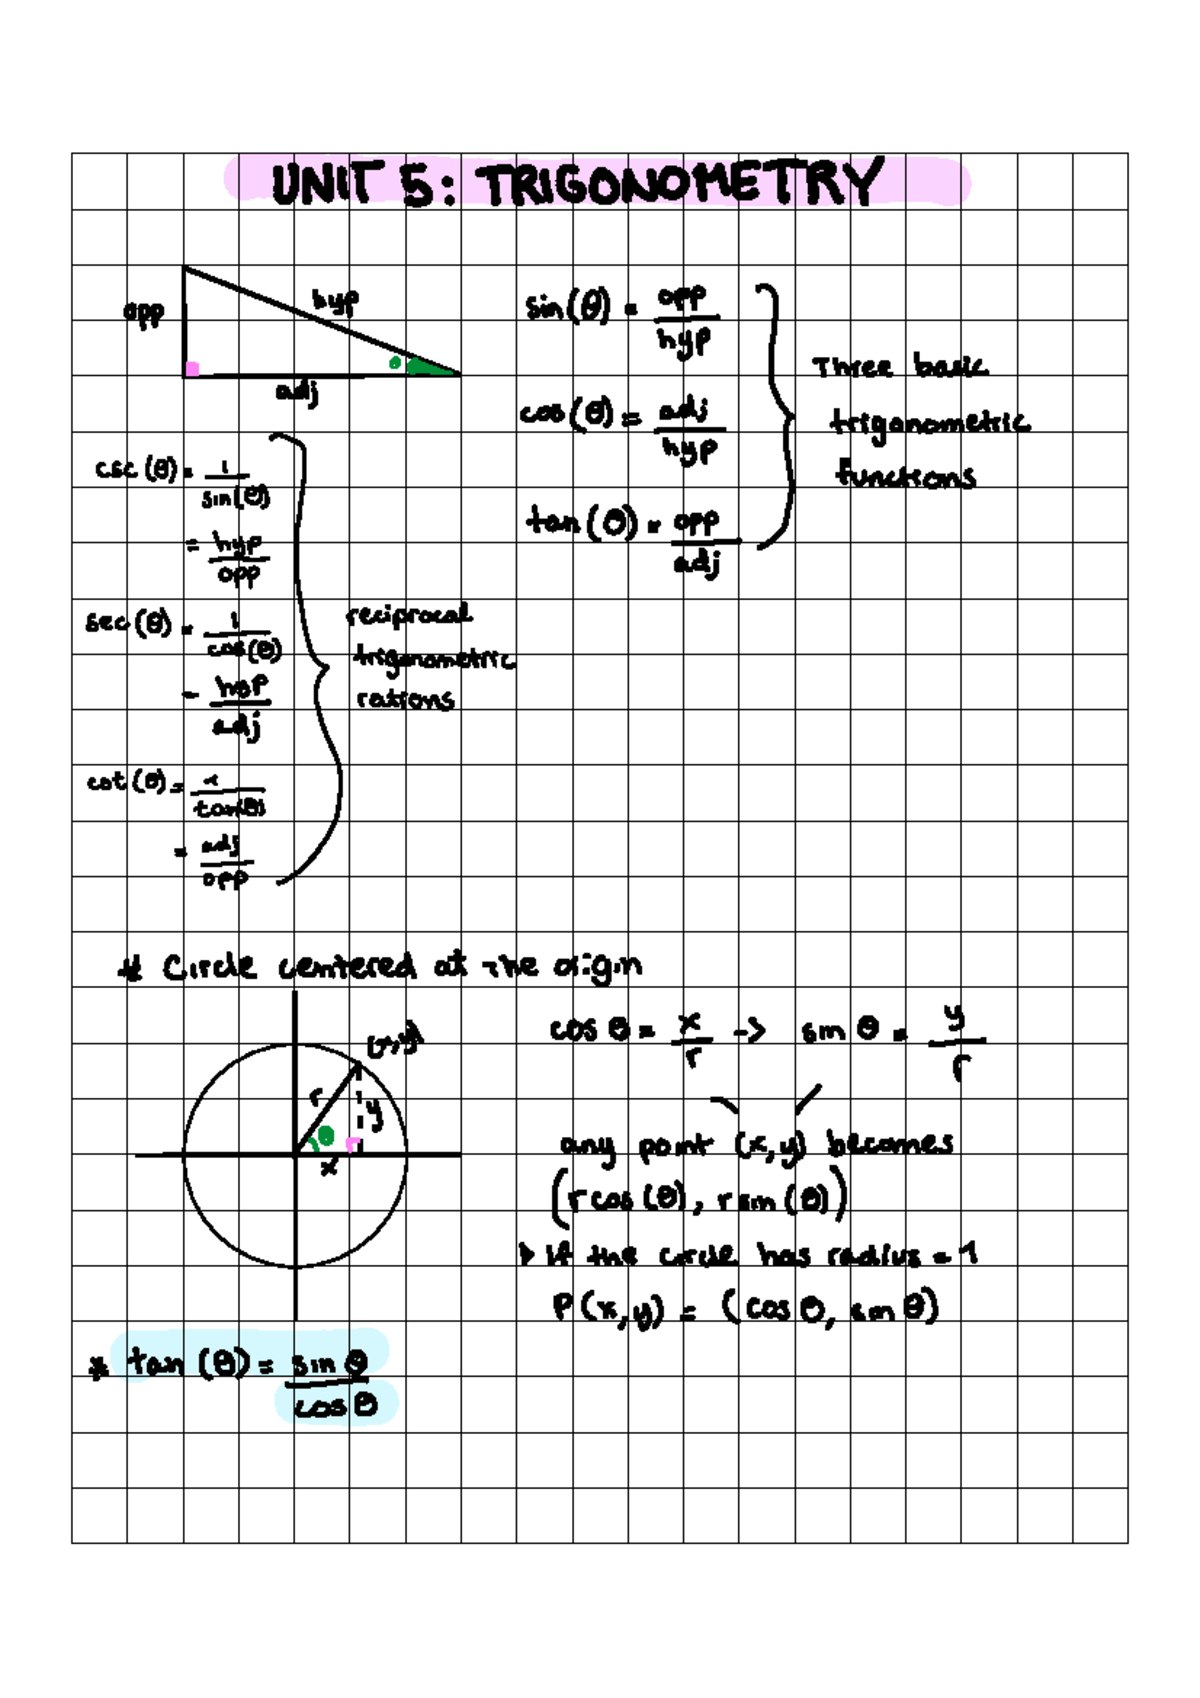 UNIT 5: TRIGONOMETRY
opp
hyp
θ
adj
sin(θ) = opp/hyp
cos(θ) = adj/hyp
tan(θ) = opp/adj
Three basic
trigonometric
functions
csc(θ) = 1/sin(θ)
= hyp/opp
sec(θ) = 1/cos(θ)
= hyp/adj
cot(θ) = 1/tan(θ)
= adj/opp
reciprocal
trigonometric
rations
* Circle centered at the origin
(x,y)
r
y
θ
x
cos θ = x/r -> sin θ = y/r
any point (x,y) becomes
(r cos(θ), r sin(θ))
If the circle has radius = 1
P(x,y) = (cos θ, sin θ)
* tan(θ) = sin θ/cos θ